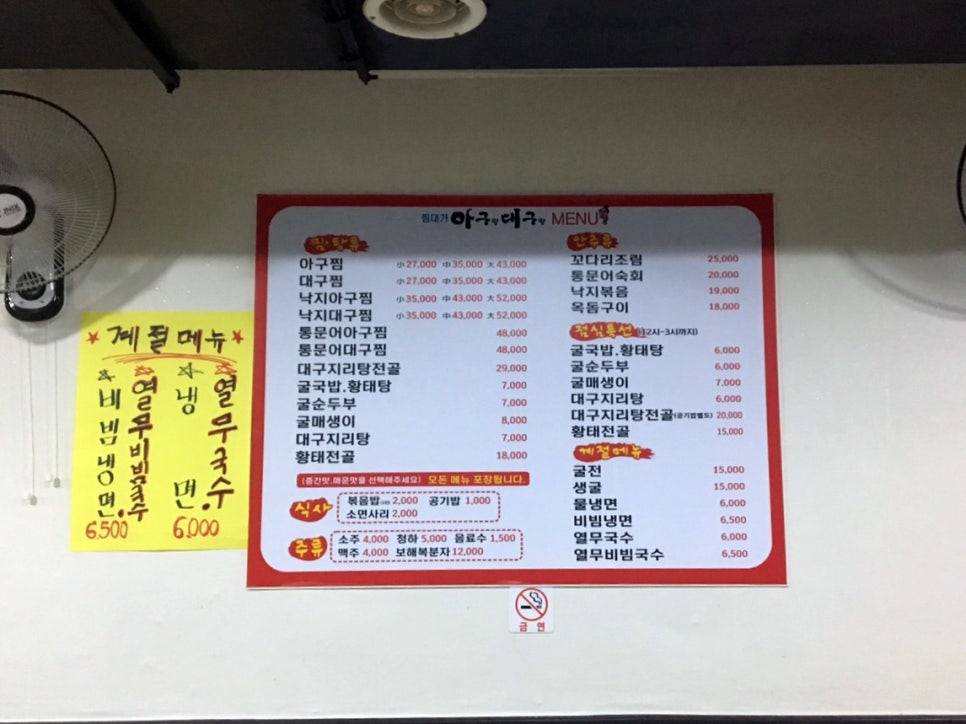 ★ 계절메뉴 ★
열무국수
냉면
6,000
열무비빔국수
비빔냉면
6,500
찜대가 아구랑대구랑 MENU
찜·탕류
아구찜 小 27,000 中 35,000 大 43,000
대구찜 小 27,000 中 35,000 大 43,000
낙지아구찜 小 35,000 中 43,000 大 52,000
낙지대구찜 小 35,000 中 43,000 大 52,000
통문어아구찜 48,000
통문어대구찜 48,000
대구지리탕전골 29,000
굴국밥.황태탕 7,000
굴순두부 7,000
굴매생이 8,000
대구지리탕 7,000
황태전골 18,000
(중간맛,매운맛을 선택해주세요) 모든 메뉴 포장됩니다.
식사
볶음밥 2,000 공기밥 1,000
소면사리 2,000
주류
소주 4,000 청하 5,000 음료수 1,500
맥주 4,000 보해복분자 12,000
안주류
꼬다리조림 25,000
통문어숙회 20,000
낙지볶음 19,000
옥돔구이 18,000
점심특선 (12시-3시까지)
굴국밥.황태탕 6,000
굴순두부 6,000
굴매생이 7,000
대구지리탕 6,000
대구지리탕전골(공기밥별도) 20,000
황태전골 15,000
계절메뉴
굴전 15,000
생굴 15,000
물냉면 6,000
비빔냉면 6,500
열무국수 6,000
열무비빔국수 6,500
금 연